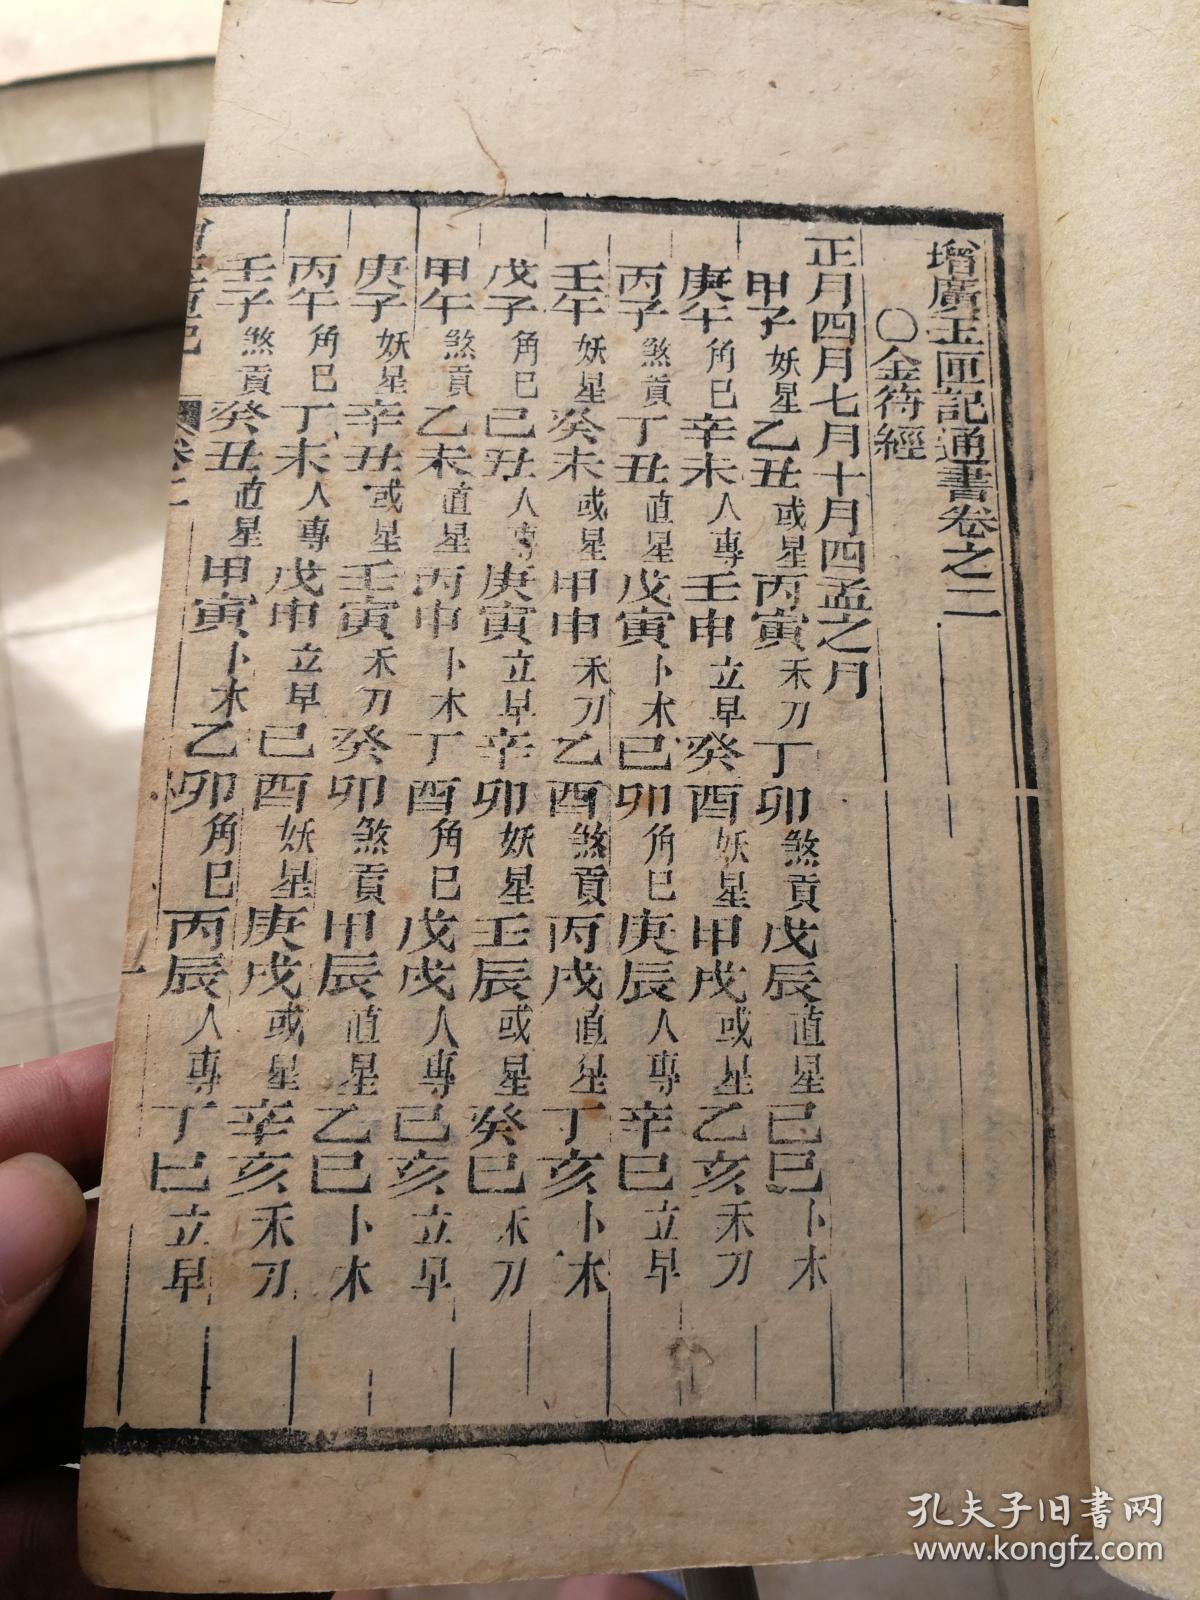 增廣玉匣記通書卷之二
〇金符經
正月四月七月十月四孟之月
甲子妖星乙丑或星丙寅禾刀丁卯煞貢戊辰直星己巳卜木
庚午角巳辛未人專壬申立早癸酉妖星甲戌或星乙亥禾刀
丙子煞貢丁丑直星戊寅卜木己卯角巳庚辰人專辛巳立早
壬午妖星癸未或星甲申禾刀乙酉煞貢丙戌直星丁亥卜木
戊子角巳己丑人專庚寅立早辛卯妖星壬辰或星癸巳禾刀
甲午煞貢乙未直星丙申卜木丁酉角巳戊戌人專己亥立早
庚子妖星辛丑或星壬寅禾刀癸卯煞貢甲辰直星乙巳卜木
丙午角巳丁未人專戊申立早己酉妖星庚戌或星辛亥禾刀
壬子煞貢癸丑直星甲寅卜木乙卯角巳丙辰人專丁巳立早
卷二
一
孔夫子旧书网
www.kongfz.com